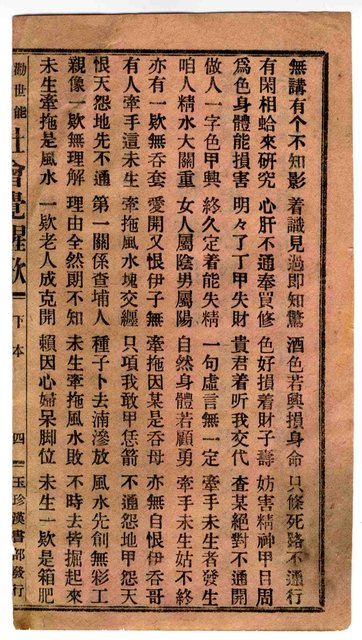 無講有个不知影 着識見過即知驚 酒色若興損身命 只條死路不通行
有閑相蛤來研究 心肝不通奉買修 色好損着財子壽 妨害精神甲日周
為色身體能損害 明々了丁甲失財 貴君着听我交代 查某絕對不通開
做人一字色甲興 終久定着能失精 一句虛言無一定 牽手未生者發生
咱人精水大關重 女人屬陰男屬陽 自然身體若顧勇 牽手未生姑不終
亦有一欵無吞套 愛開又恨伊子無 牽拖因某是吞母 亦無自恨伊吞哥
有人牽手這未生 牽拖風水塊交纏 只項我敢甲恁箭 不通怨地甲怨天
恨天怨地先不通 第一關係查埔人 種子卜去湳滲放 風水先創無彩工
親像一欵無理解 理由全然朗不知 未生牽拖風水敗 不時去皆掘起來
未生牽拖是風水 一欵老人成克開 賴因心婦呆脚位 未生一欵是箱肥
勸世能 社會覺醒歌 下本 四 玉珍漢書部發行